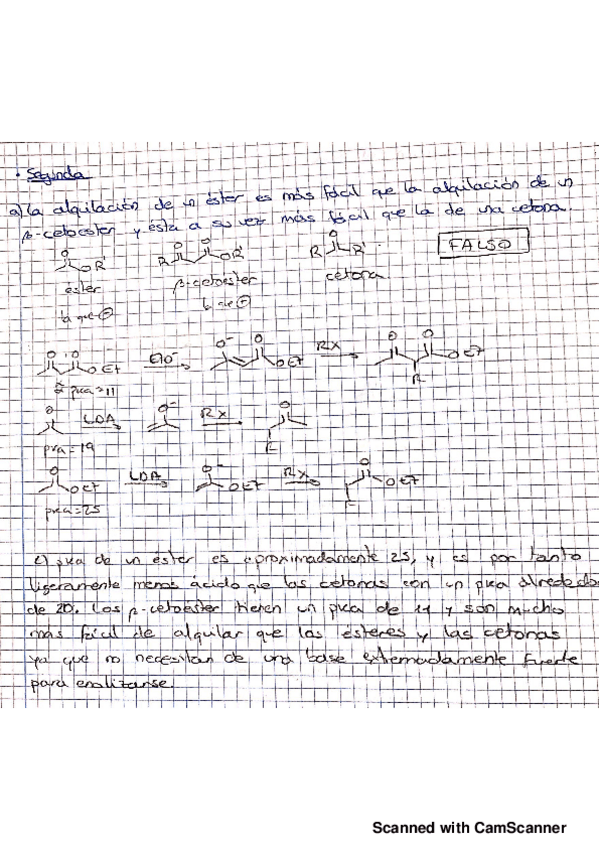 • Segunda
a) La alquilación de un éster es más fácil que la alquilación de un
β-cetoester y ésta a su vez más fácil que la de una cetona.
FALSO
OR'
R OR'
R R'
éster
β-cetoester
cetona
OEt EtO⁻ OEt RX OEt
R
pka=11
LDA RX
pka=19
OEt LDA OEt RX OEt
pka=25
El pka de un ester es aproximadamente 25, y es por tanto
ligeramente menos ácido que las cetonas con un pka alrededor
de 20. Los β-cetoester tienen un pka de 11 y son mucho
más fácil de alquilar que los ésteres y las cetonas
ya que no necesitan de una base extremadamente fuerte
para enolizarse.
Scanned with CamScanner